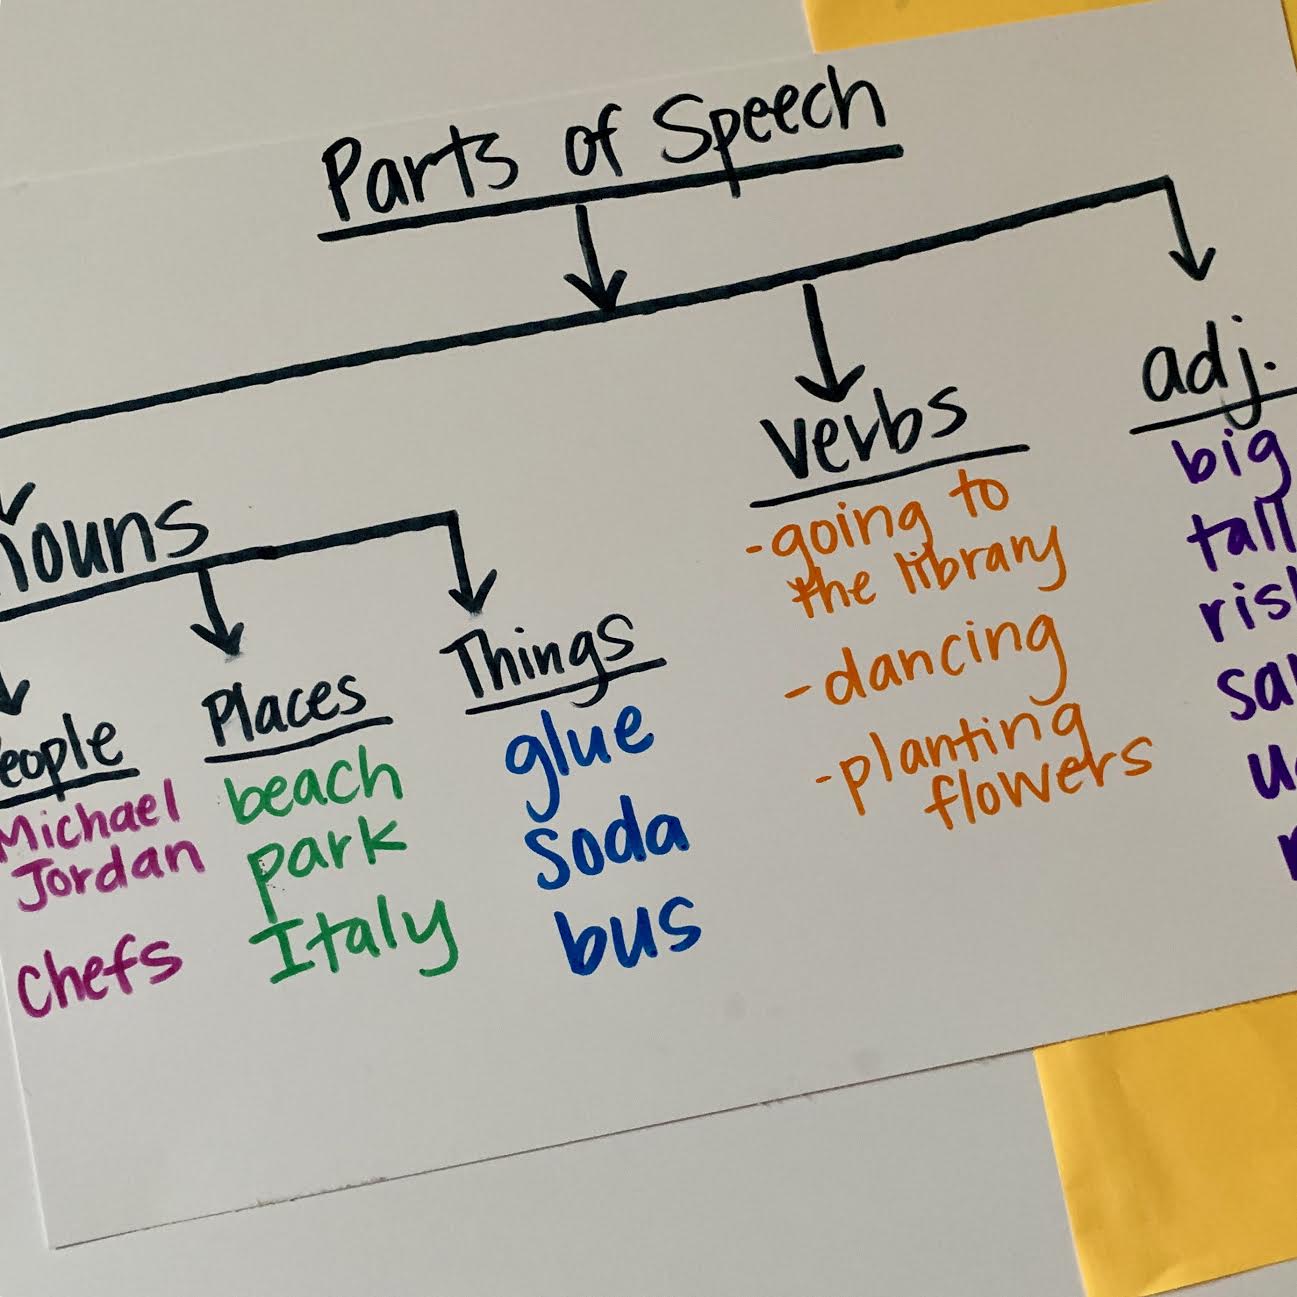 Parts of Speech
nouns
People
Michael
Jordan
Chefs
Places
beach
park
Italy
Things
glue
soda
bus
verbs
-going to
the library
-dancing
-planting
flowers
adj.
big
tall